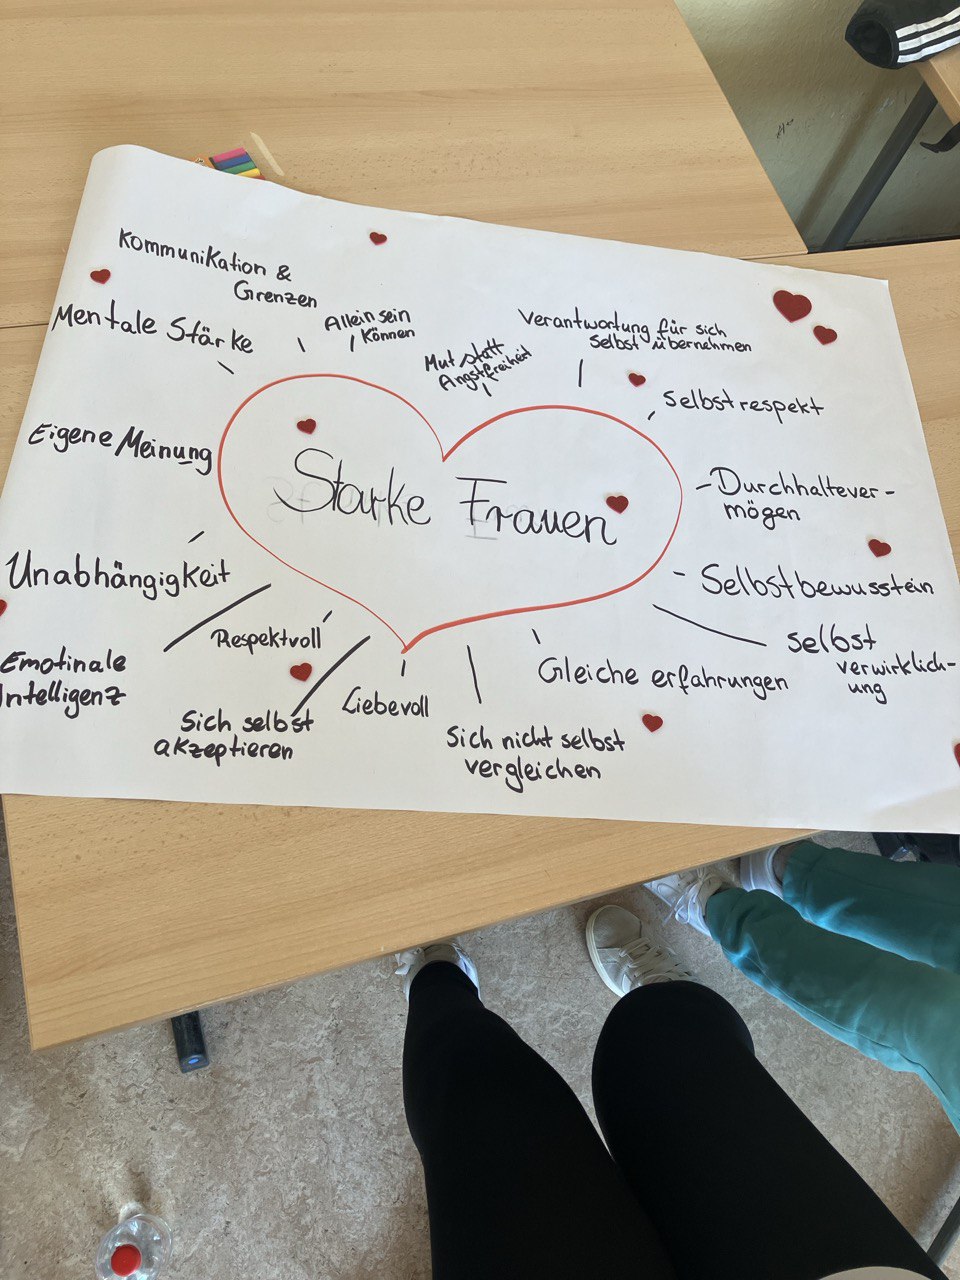 Kommunikation &
Grenzen
Mentale Stärke
Allein sein
Können
Mut statt
Angstfreiheit
Verantwortung für sich
selbst übernehmen
Selbstrespekt
Eigene Meinung
Starke Frauen
Durchhaltever-
mögen
Unabhängigkeit
Selbstbewusstein
selbst
verwirklich-
ung
Respektvoll
Emotinale
Intelligenz
Gleiche erfahrungen
Liebevoll
Sich selbst
akzeptieren
Sich nicht selbst
vergleichen